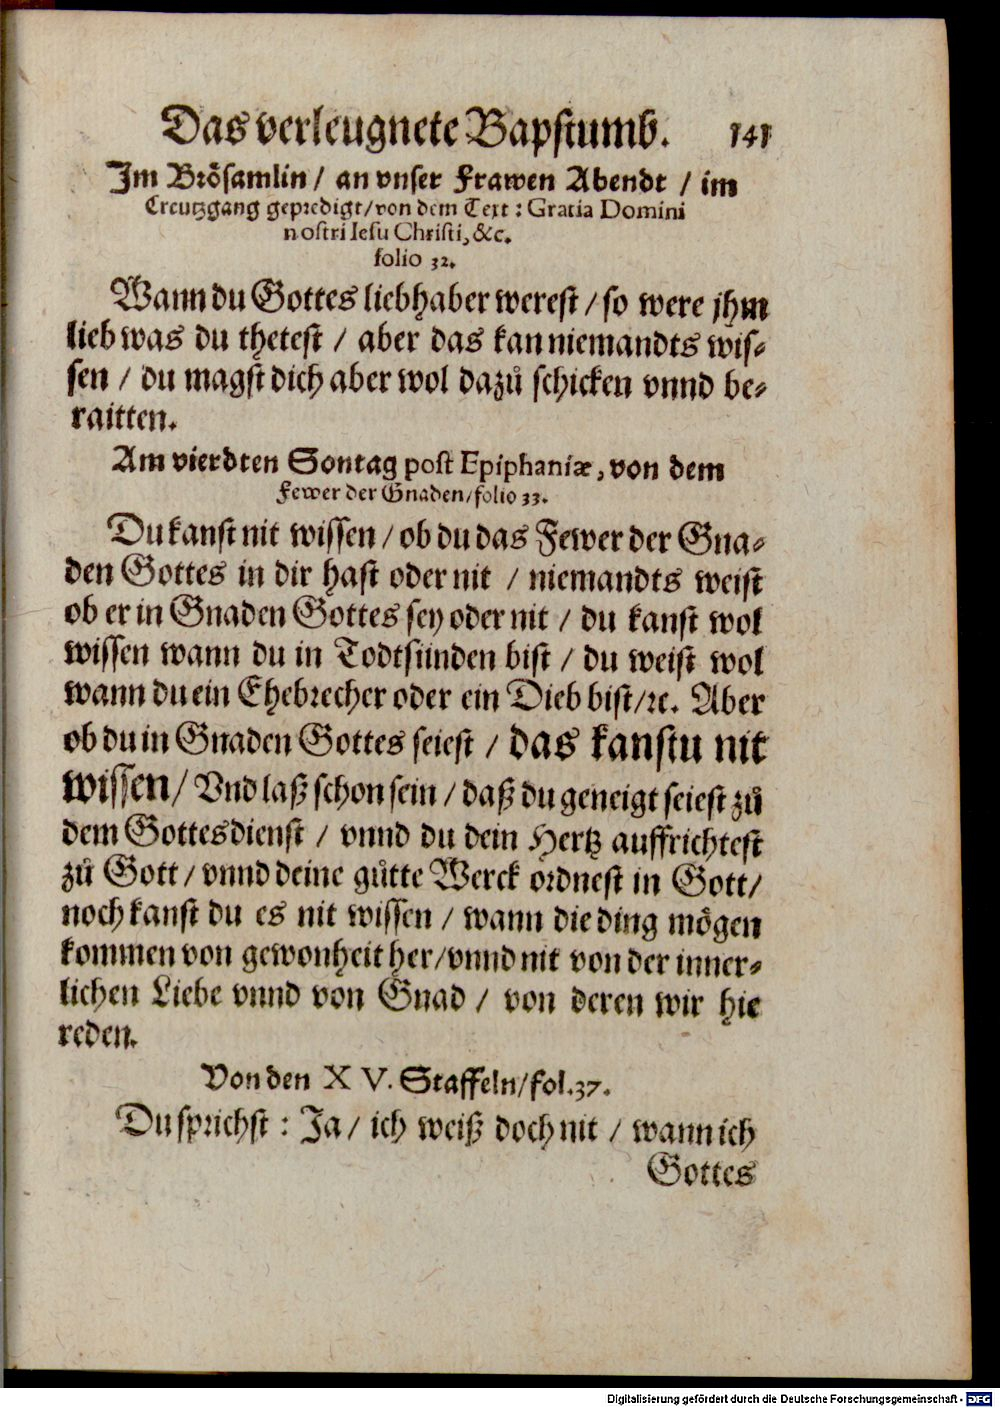 Das verleugnete Bapstumb. 141
Im Brösamlin / an vnser Frawen Abendt / im
Creutzgang geprediget / von dem Text : Gratia Domini
nostri Iesu Christi, &c.
folio 32.
Wann du Gottes liebhaber werest / so were jhm
lieb was du thetest / aber das kan niemandts wis-
sen / du magst dich aber wol dazů schicken vnnd be-
raitten.
Am vierdten Sontag post Epiphaniæ, von dem
Fewer der Gnaden / folio 33.
Du kanst nit wissen / ob du das Fewer der Gna-
den Gottes in dir hast oder nit / niemandts weist
ob er in Gnaden Gottes sey oder nit / du kanst wol
wissen wann du in Todtsünden bist / du weist wol
wann du ein Ehebrecher oder ein Dieb bist / ꝛc. Aber
ob du in Gnaden Gottes seiest / das kanstu nit
wissen / Vnd laß schon sein / daß du geneigt seiest zů
dem Gottesdienst / vnnd du dein Hertz auffrichtest
zů Gott / vnnd deine gůtte Werck ordnest in Gott /
noch kanst du es nit wissen / wann die ding mögen
kommen von gewonheit her / vnnd nit von der inner-
lichen Liebe vnnd von Gnad / von deren wir hie
reden.
Von den XV. Staffeln / fol. 37.
Du sprichst : Ja / ich weiß doch nit / wann ich
Gottes
Digitalisierung gefördert durch die Deutsche Forschungsgemeinschaft - DFG